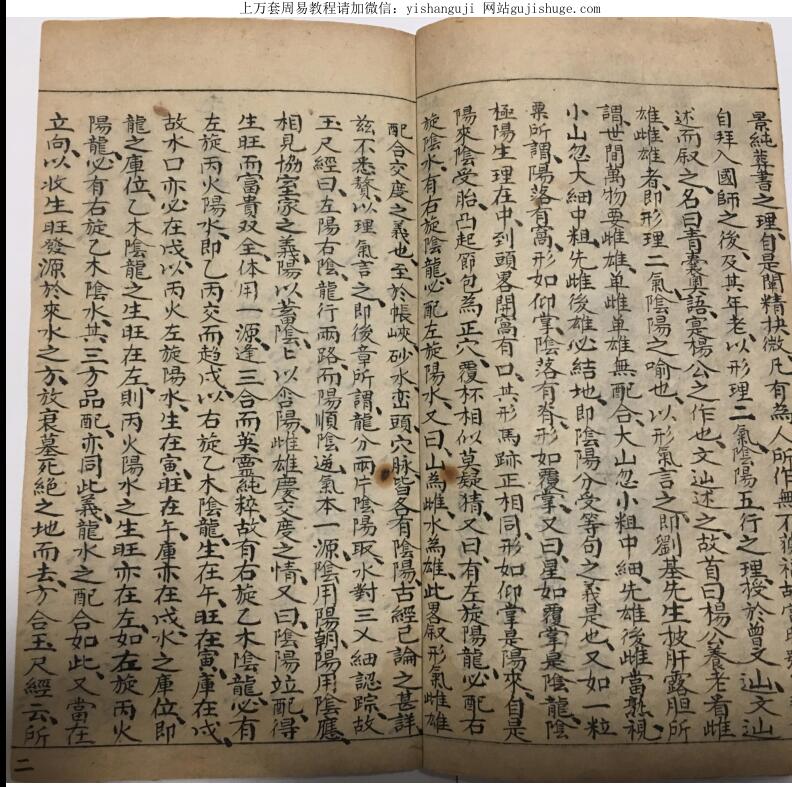 上万套周易教程请加微信：yishanguji 网站gujishuge.com
景純葬書之理，自是闡精抉微，凡有為人所作無不獲福故當時
自拜入國師之後，及其年老，以形理二氣陰陽五行之理授於曾文辿文辿
述而叙之，名曰青囊奧語，寔楊公之作也，文辿述之，故首曰楊公養老看雌
雄，雌雄者，即形理二氣陰陽之喻也，以形氣言之，即劉基先生披肝露胆所
謂世間萬物要雌雄，单雌单雄無配合，大山忽小粗中細，先雄後雌當熟視，
小山忽大細中粗，先雌後雄必結地，即陰陽分受等句之義是也，又如一粒
粟所謂陽落有窩，形如仰掌，陰落有脊，形如覆掌，又曰星如覆掌是陰龍，陰
極陽生理在中，到頭畧開窩有口，其形馬跡正相同，形如仰掌是陽來，自是
陽來陰受胎，凸起節包為正穴，覆杯相似莫疑猜，又曰有左旋陽龍，必配右
旋陰水，有右旋陰龍，必配左旋陽水，又曰山為雌水為雄，此畧叙形氣雌雄
配合交度之義也，至於帳峽砂水峦頭穴脉皆各有陰陽古經已論之甚詳
玆不悉贅，以理氣言之，即後章所謂龍分兩片陰陽取，水對三义細認踪，故
玉尺經曰左陽右陰，龍行兩路，而陽順陰逆，氣本一源，陰用陽朝，陽用陰應，
相見協室家之義，陽以蓄陰，上以含陽，雌雄慶交度之情，又曰陰陽竝配，得
生旺而富貴双全，体用一源，逢三合而英靈純粹，故有右旋乙木陰龍，必有
左旋丙火陽水，即乙丙交而趋戍，以右旋乙木陰龍，生在午，旺在寅，庫在戍，
故水口亦必在戍，以丙火左旋陽水，生在寅，旺在午，庫亦在戍，水之庫位，即
龍之庫位，乙木陰龍之生旺在左，則丙火陽水之生旺亦在左，如左旋丙火
陽龍，必有右旋乙木陰水，其三方品配，亦同此義，龍水之配合如此，又當在
立向，以收生旺發源於來水之方，放衰墓死絕之地而去，方合玉尺經云，所
二